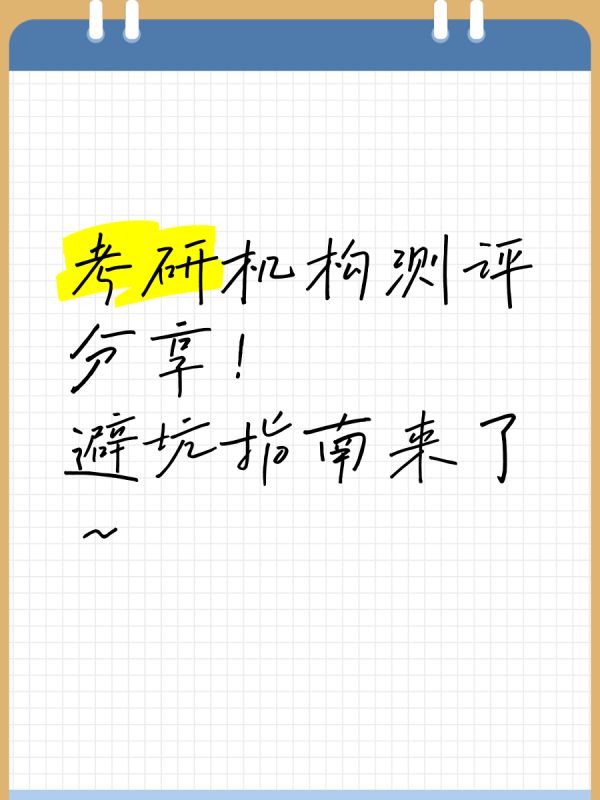 考研机构测评
分享！
避坑指南来了
~